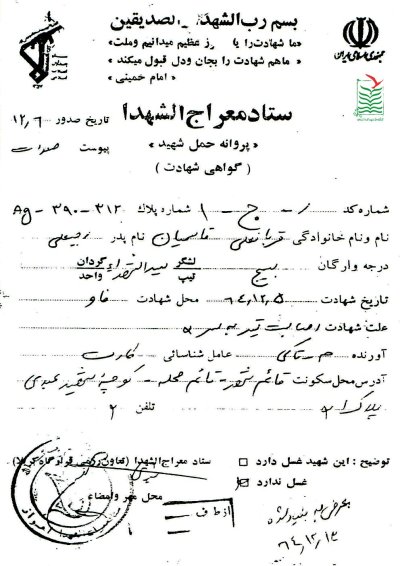 بسم رب الشهداء والصدیقین
«ما شهادت را یا رز عظیم میدانیم وملت»
«ماهم شهادت را بجان ودل قبول میکند»
«امام خمینی»
جمهوری اسلامی ایران
ستاد معراج الشهدا
تاریخ صدور ۱۲٫۶
«پروانه حمل شهید»
پیوست
(گواهی شهادت)
شماره کد ج شماره پلاک ۳۱۲-۳۹۰-Ag
نام ونام خانوادگی قربانعلی قاسمیان نام پدر رجبعلی
درجه وارگان بسیج لشگر تیپ سیدالشهداء گردان واحد
تاریخ شهادت ۶۴٫۱۲٫۵ محل شهادت فاو
علت شهادت اصابت تیر به سر
آورنده عامل شناسائی کارت
آدرس محل سکونت قائم شهر - قائم محله - کوچه شهید
پلاک تلفن ۲
توضیح: این شهید غسل دارد □
غسل ندارد ☑
ستاد معراج الشهدا (تعاون رزمی قرارگاه کربلا)
محل مهر وامضاء
از ط ف
۶۴٫۱۲٫۱۲